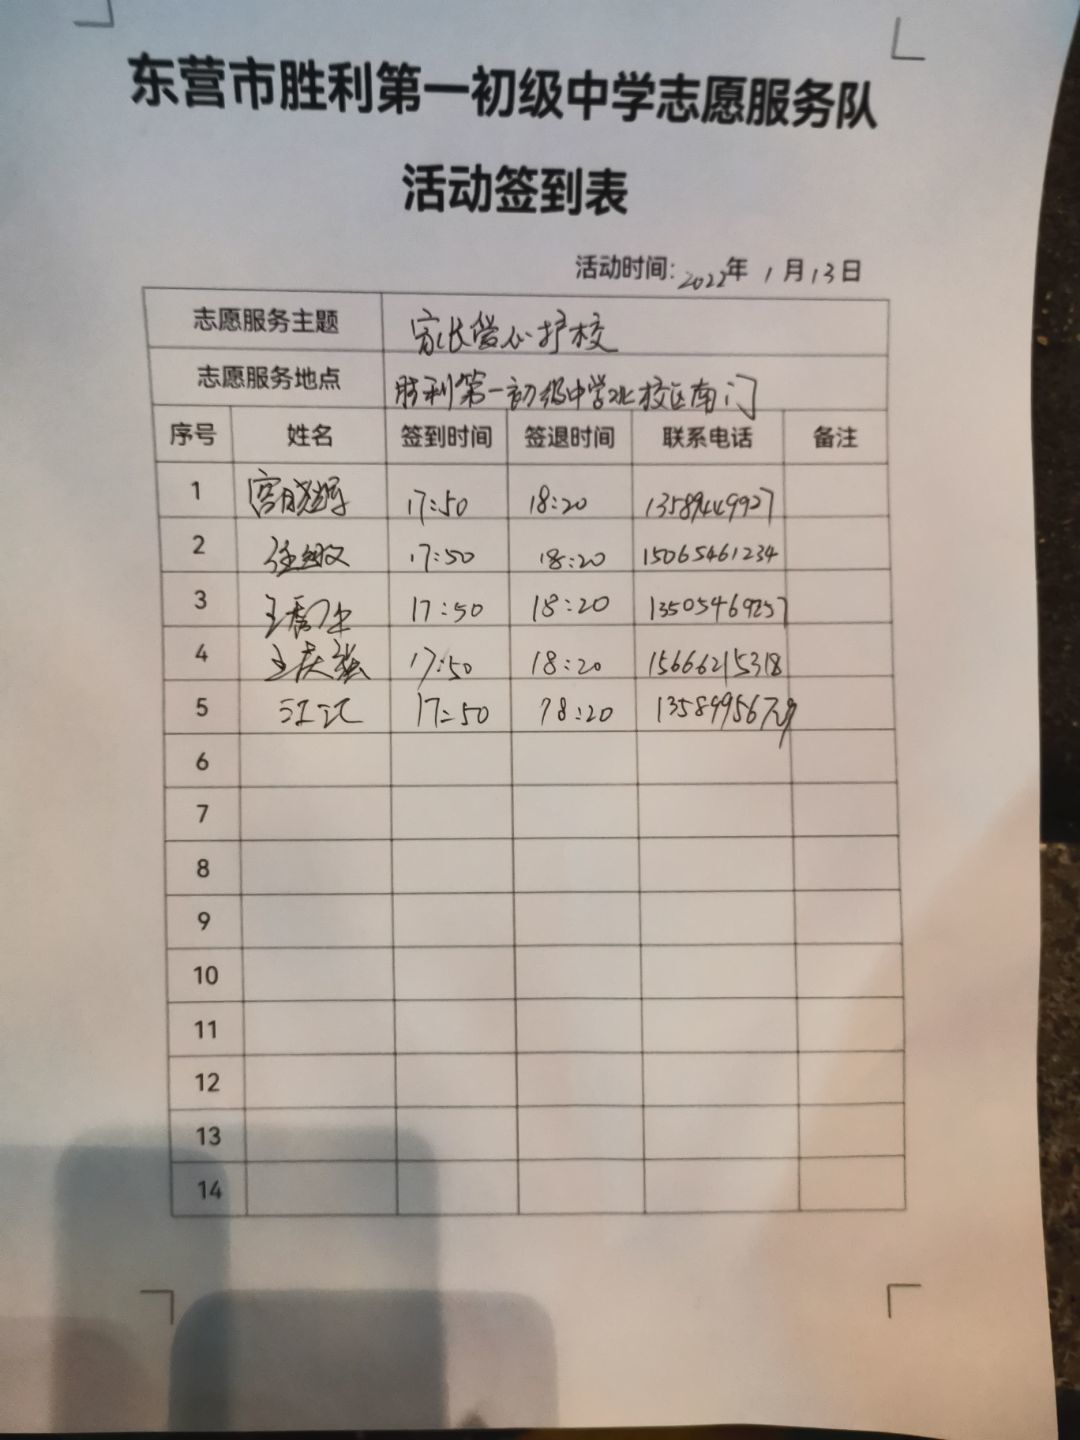 东营市胜利第一初级中学志愿服务队
活动签到表
活动时间：2022年 1月13日
志愿服务主题 家长爱心护校
志愿服务地点 胜利第一初级中学北校区南门
序号 姓名 签到时间 签退时间 联系电话 备注
1 17:50 18:20
2 17:50 18:20 15065461234
3 17:50 18:20 13505469257
4 17:50 18:20 15666215318
5 17:50 18:20
6
7
8
9
10
11
12
13
14